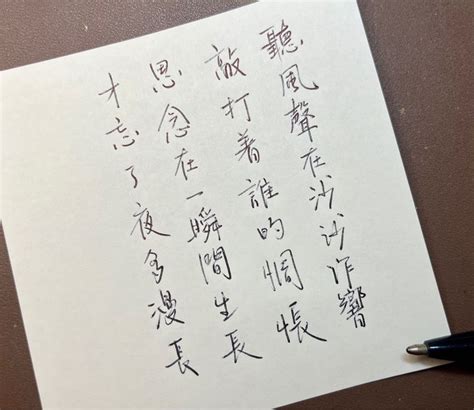 聽風聲在沙沙作響
敲打着誰的惆悵
思念在一瞬間生長
才忘了夜多漫長